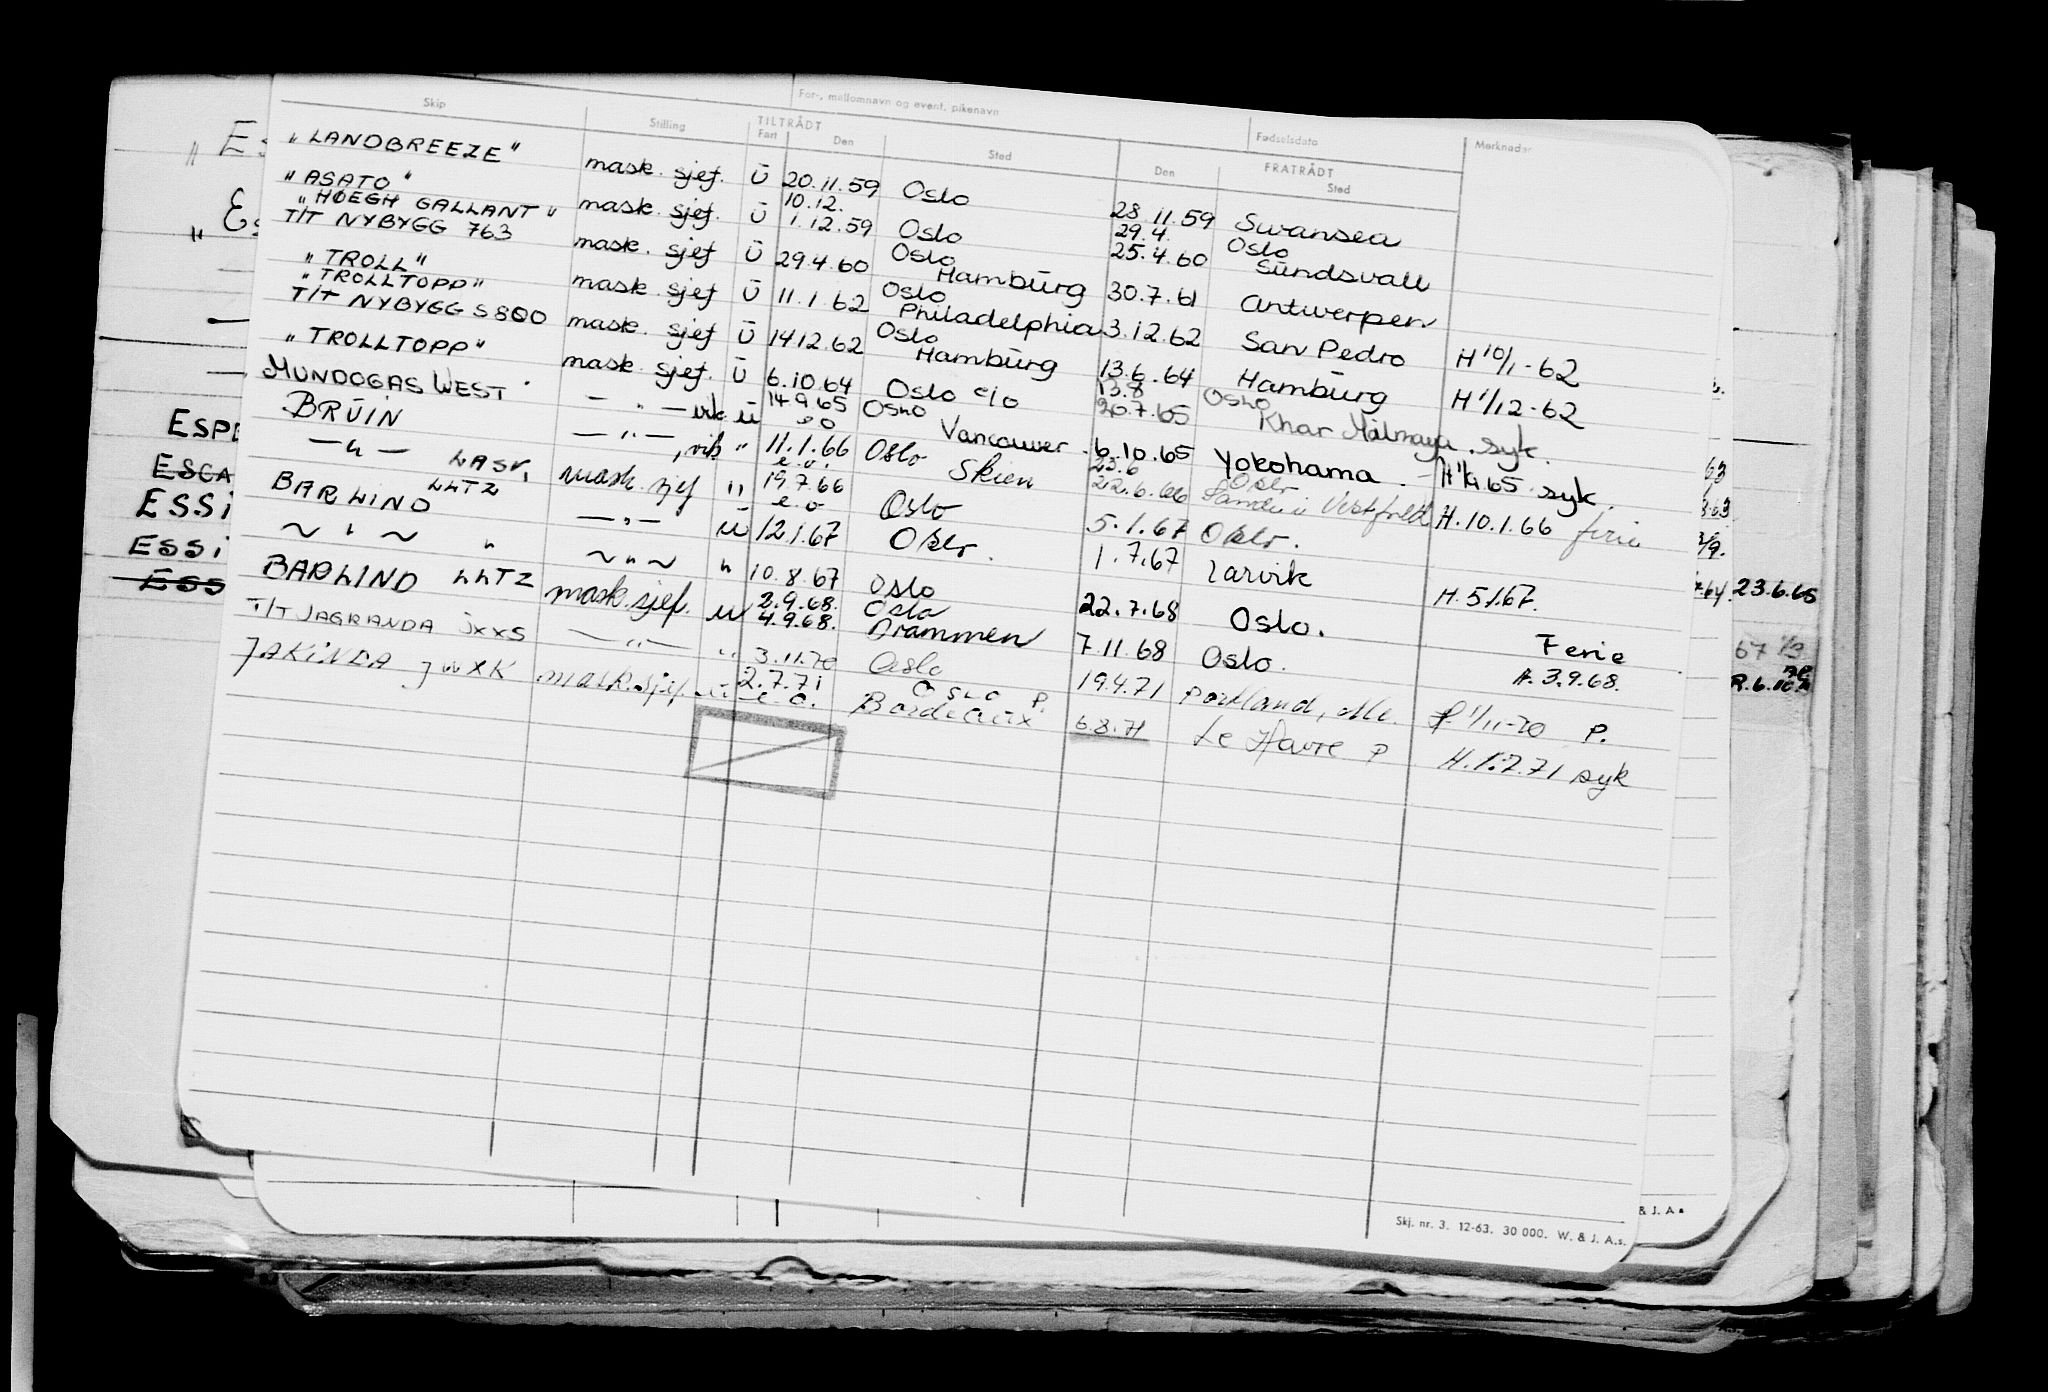 For-, mellomnavn og event. pikenavn
Fødselsdato
Skip Stilling TILTRÅDT Fart Den Sted Den FRATRÅDT Sted Merknader
"LANDBREEZE" mask. sjef. Ü 20.11.59 Oslo 28.11.59 Swansea
"ASATO" mask. sjef. Ü 10.12. 1.12.59 Oslo 29.4. 25.4.60 Oslo Sündsvall
"HØEGH GALLANT"
T/T NYBYGG 763 mask. sjef Ü 29.4.60 Oslo Hambürg 30.7.61 Antwerpen
"TROLL" mask. sjef Ü 11.1.62 Oslo Philadelphia 3.12.62 San Pedro H 10/1-62
"TROLLTOPP"
T/T NYBYGG S 800 mask. sjef Ü 14.12.62 Oslo Hambürg 13.6.64 Hambürg H 1/12-62
"TROLLTOPP" mask. sjef. Ü 6.10.64 Oslo e/o 13.8 30.7.65 Oslo Khar syk.
MUNDOGAS WEST — " — vik ü 14.9.65 e o Oslo Vancouver 6.10.65 Yokohama syk.
BRÜIN — " — , vik " 11.1.66 e.o. Oslo Skien 23.6 22.6.66 Oslo H. 10.1.66 ferie
— " — LASV, mask. sjef " 19.7.66 e.o Oslo 5.1.67 Oslo.
BARLIND LLTZ — " — ü 12.1.67 Oslo. 1.7.67 Larvik H. 5.1.67.
~ " ~ " ~ " ~ " 10.8.67 Oslo 22.7.68 Oslo. Ferie
BARLIND LLTZ mask. sjef. u 2.9.68. 4.9.68. Oslo Drammen 7.11.68 Oslo. H. 3.9.68.
T/T JAGRANDA JXXS — " — " 3.11.70 Oslo 19.4.71 Portland, Me. 1/11-70 P.
JAKINDA JWXK mask. sjef. 2.7.71 e.o. OSLO P. Bordeaux 6.8.71 Le Havre P H. 1.7.71 syk
Skj. nr. 3. 12-63. 30 000. W. & J. A.s.
& J. A
ESCA
ESSI
ESSI
ESS
23.6.65